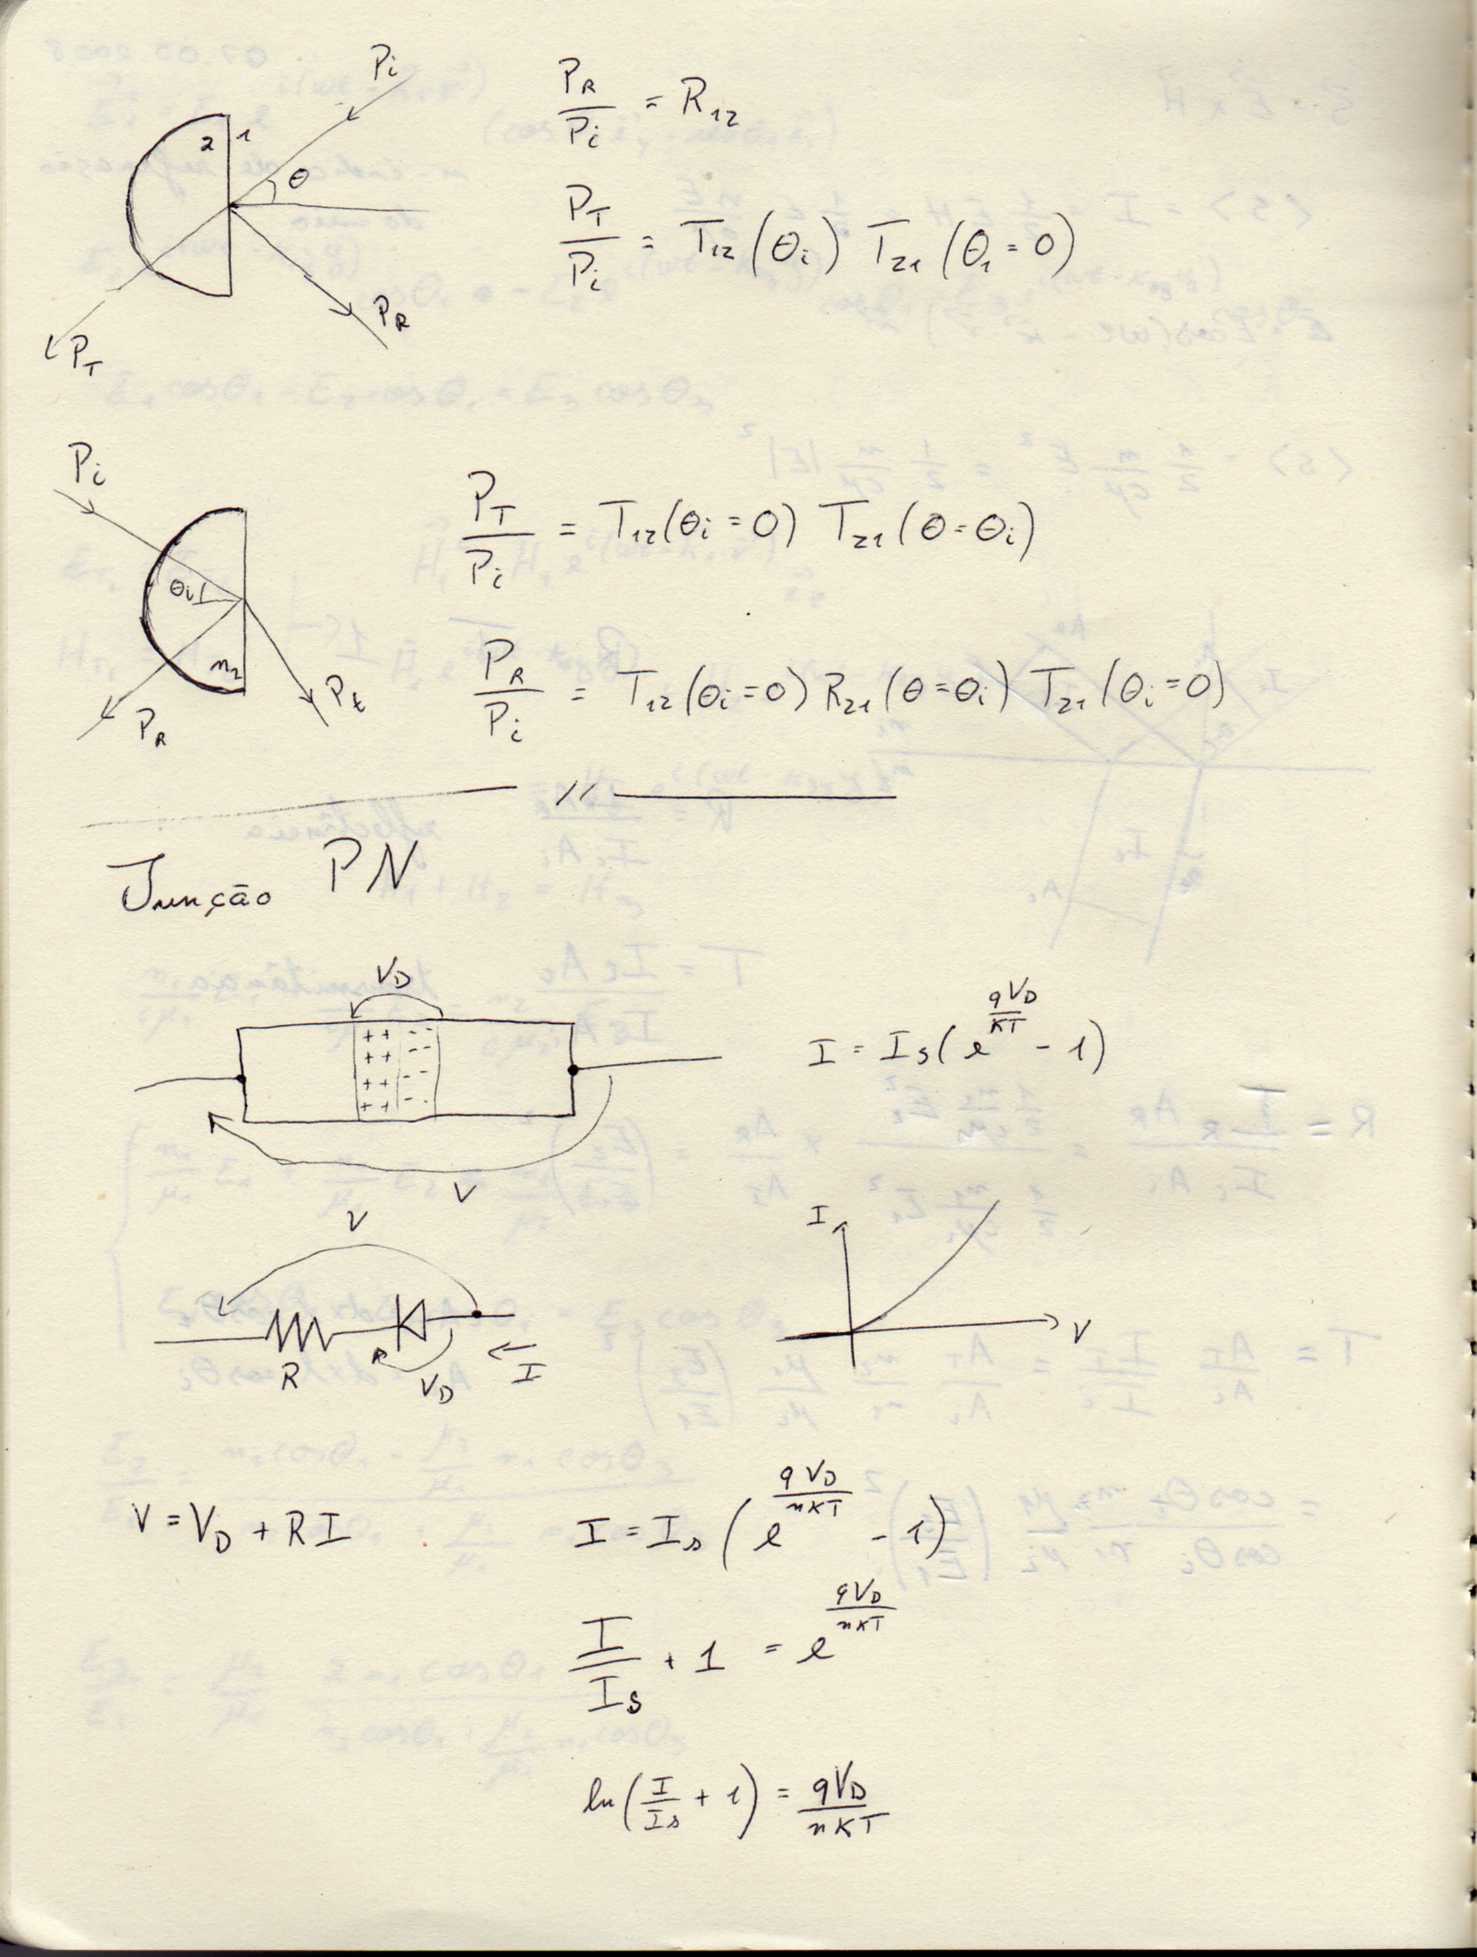 Pi
2 1
θ
P_R
P_T
P_R/P_i = R₁₂
P_T/P_i = T₁₂(θ_i) T₂₁(θ₁=0)
Pi
θi
n₂
P_R
P_t
P_T/P_i = T₁₂(θ_i=0) T₂₁(θ=θ_i)
P_R/P_i = T₁₂(θ_i=0) R₂₁(θ=θ_i) T₂₁(θ_i=0)
//
Junção PN
V_D
+ + - -
+ + - -
+ + - -
+ + - -
V
I = I_S(e^(qV_D/KT) - 1)
V
R
V_D
I
I
V
V = V_D + RI
I = I_s(e^(qV_D/nKT) - 1)
I/I_S + 1 = e^(qV_D/nKT)
ln(I/I_s + 1) = qV_D/nKT